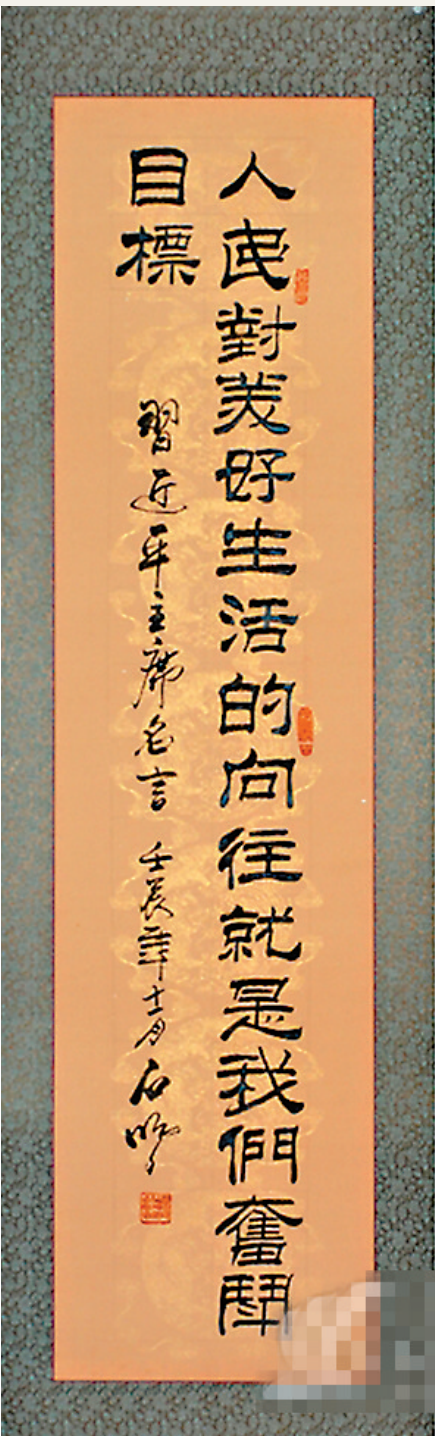 人民對美好生活的向往就是我們奮鬥
目標
習近平主席名言 壬辰年十二月 石